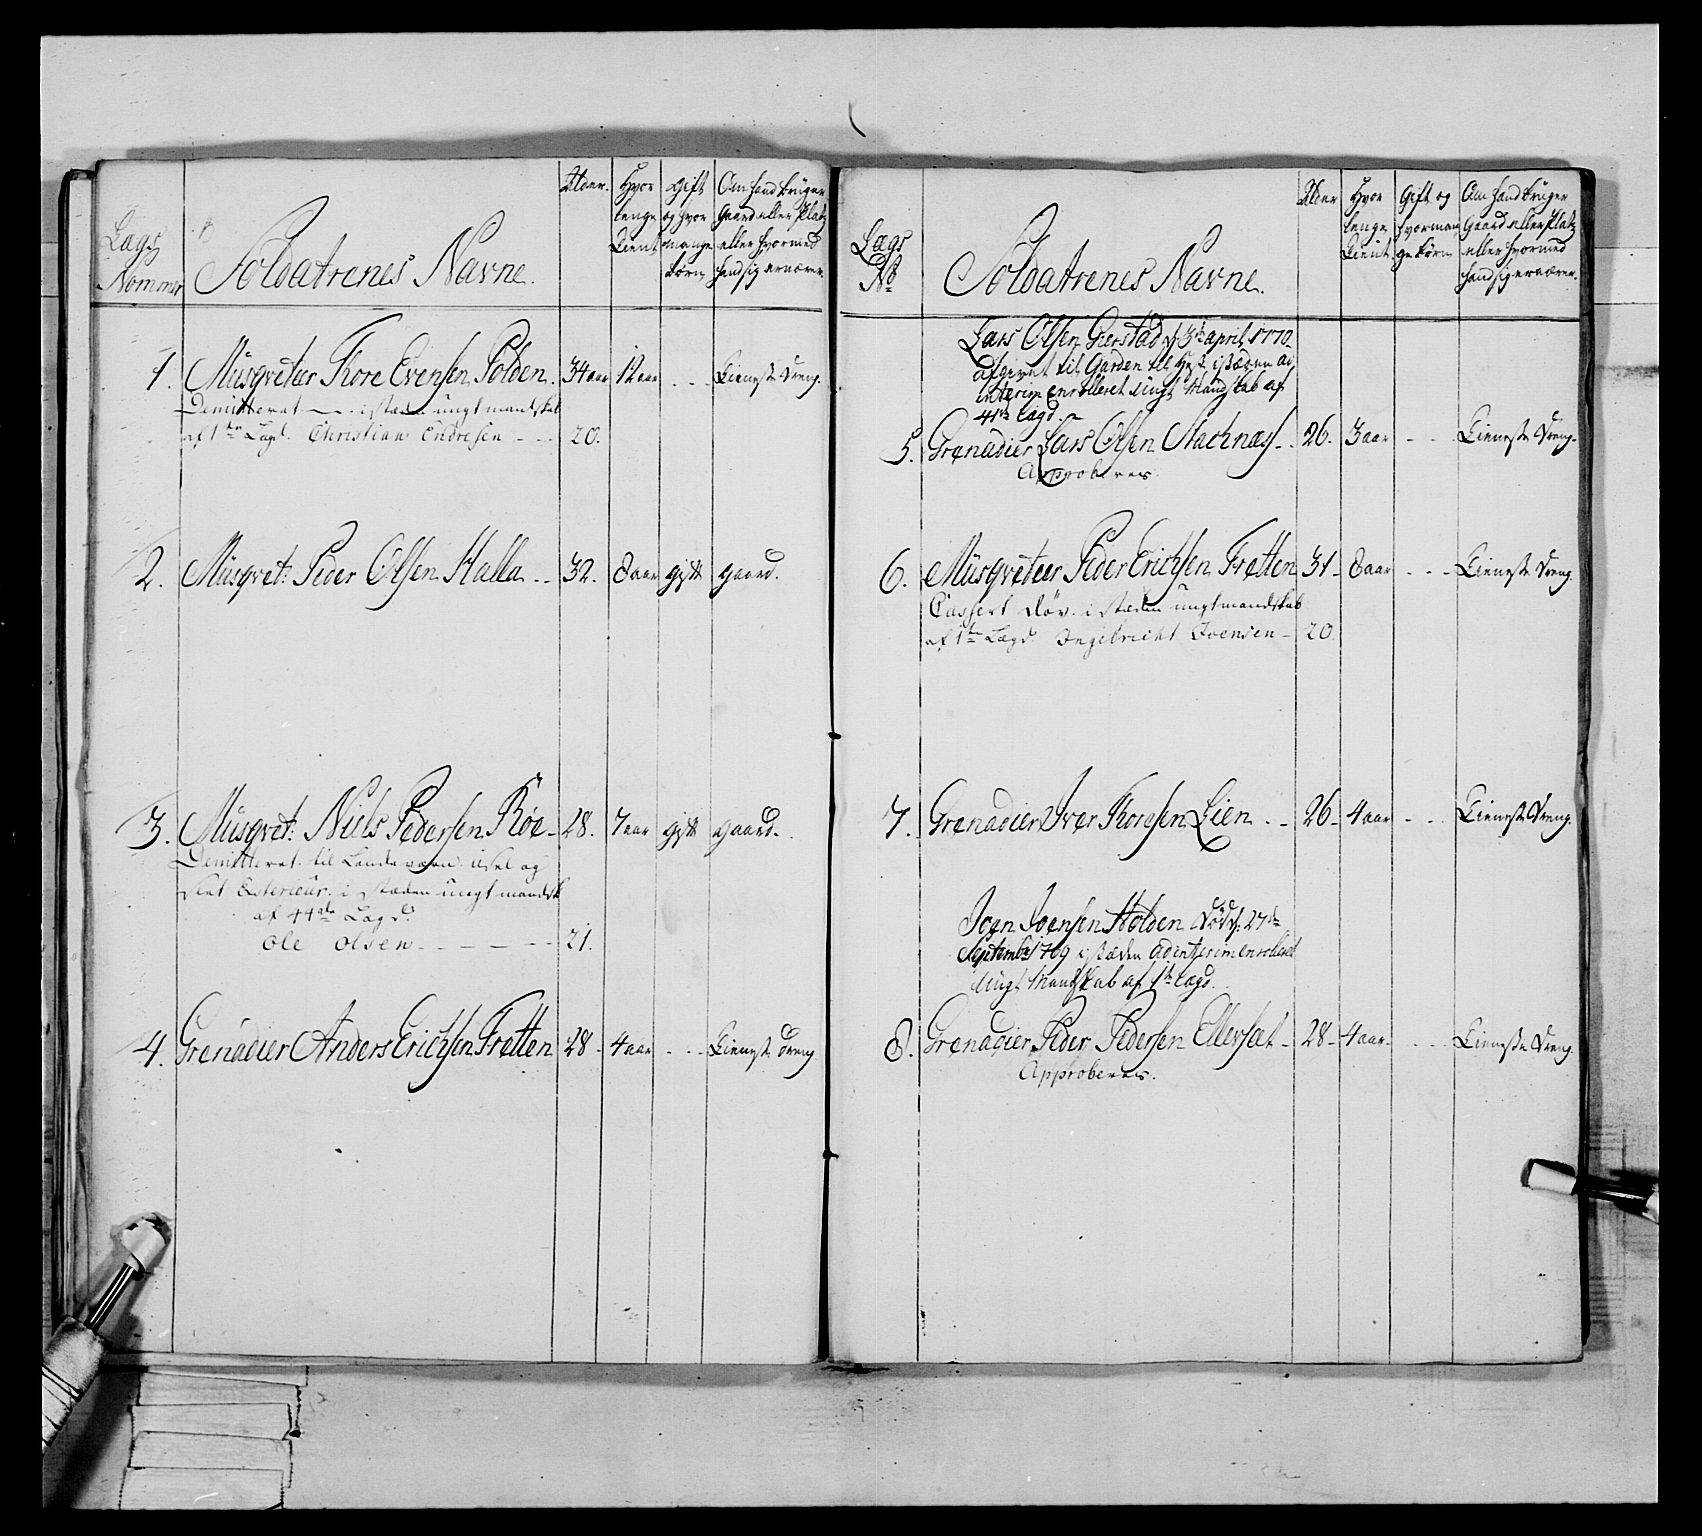 Lægs
Nommer
Soldaternes Navne.
Alder.
Hvor
lenge
tient
gift
og hvor
mange
børn
Om hand bruger
gaard eller Platz
eller hvormed
hand sig ernærer.
1. Musqveteer Thore Evensen Polden. 34 aar 12 aar - - - Tieneste Dreng.
Demitteret i stæden ungt mandskab
af 1te Lægd. Christian Endresen - - - 20.
2. Musqvet: Peder Olsen Halla - - 32. 8 aar gift gaard.
3. Musqvet: Niels Pedersen Röe - 28. 7 aar gift gaard.
Demitteret til Landeværn usel og
slet Exterieur. i stæden ungt mandsk
af 44de Lægd.
Ole Olsen - - - - - 21.
4. Grenadier Anders Erichsen Fretten 28 - 4 aar - - - Tieneste dreng
Lægs
No
Soldaternes Navne.
Alder
Hvor
lenge
tient
Gift og
hvorman
ge børn
Om hand bruger
Gaard eller Platz
eller hvormed
hand sig ernærer.
Lars Olsen Gierstad d 3de april 1770
afgivet til Garden til Hest istæden ad
interim Enrolleret Ungt Mandskab af
41de Lægd.
5. Grenadier Lars Olsen Stachnæs - - 26. 3 aar - - - Tieneste Dreng.
Approberes.
6. Musqveteer Peder Erichsen Fretten 31 - 8 aar - - - Tieneste Dreng.
Casseret døv. i stæden ungt mandskab
af 1te Lægd Ingebricht Joensen - 20
7. Grenadier Iver Thomsen Lien - - 26 - 4 aar - - - Tieneste Dreng.
Joen Joensen Holden Død d: 27de
Septembr 1769 istæden ad interim enrolleret
Ungt Mandskab af 1te Lægd.
8. Grenadier Peder Pedersen Ellevset - 28 - 4 aar - - - Tieneste Dreng.
Approberes.